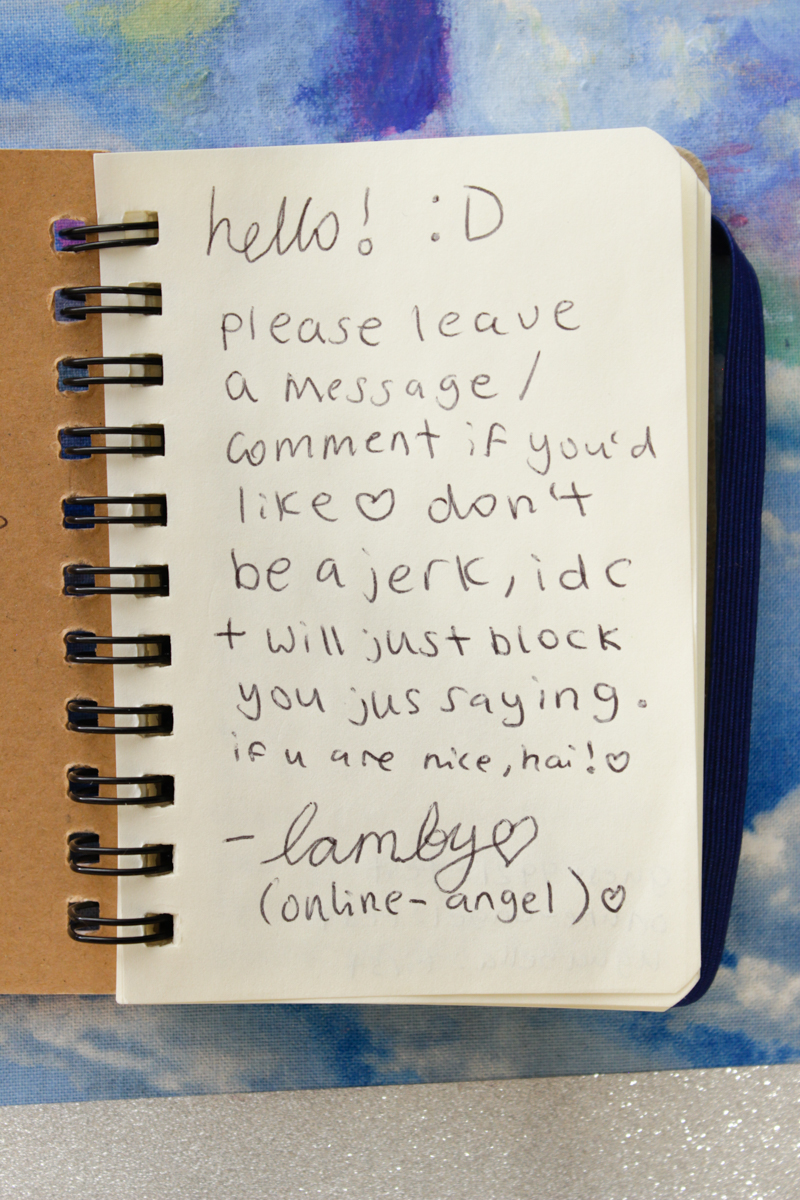 hello! :D
please leave
a message /
comment if you'd
like ♡ don't
be a jerk, idc
+ will just block
you jus saying.
if u are nice, hai! ♡
- lamby ♡
(online-angel) ♡